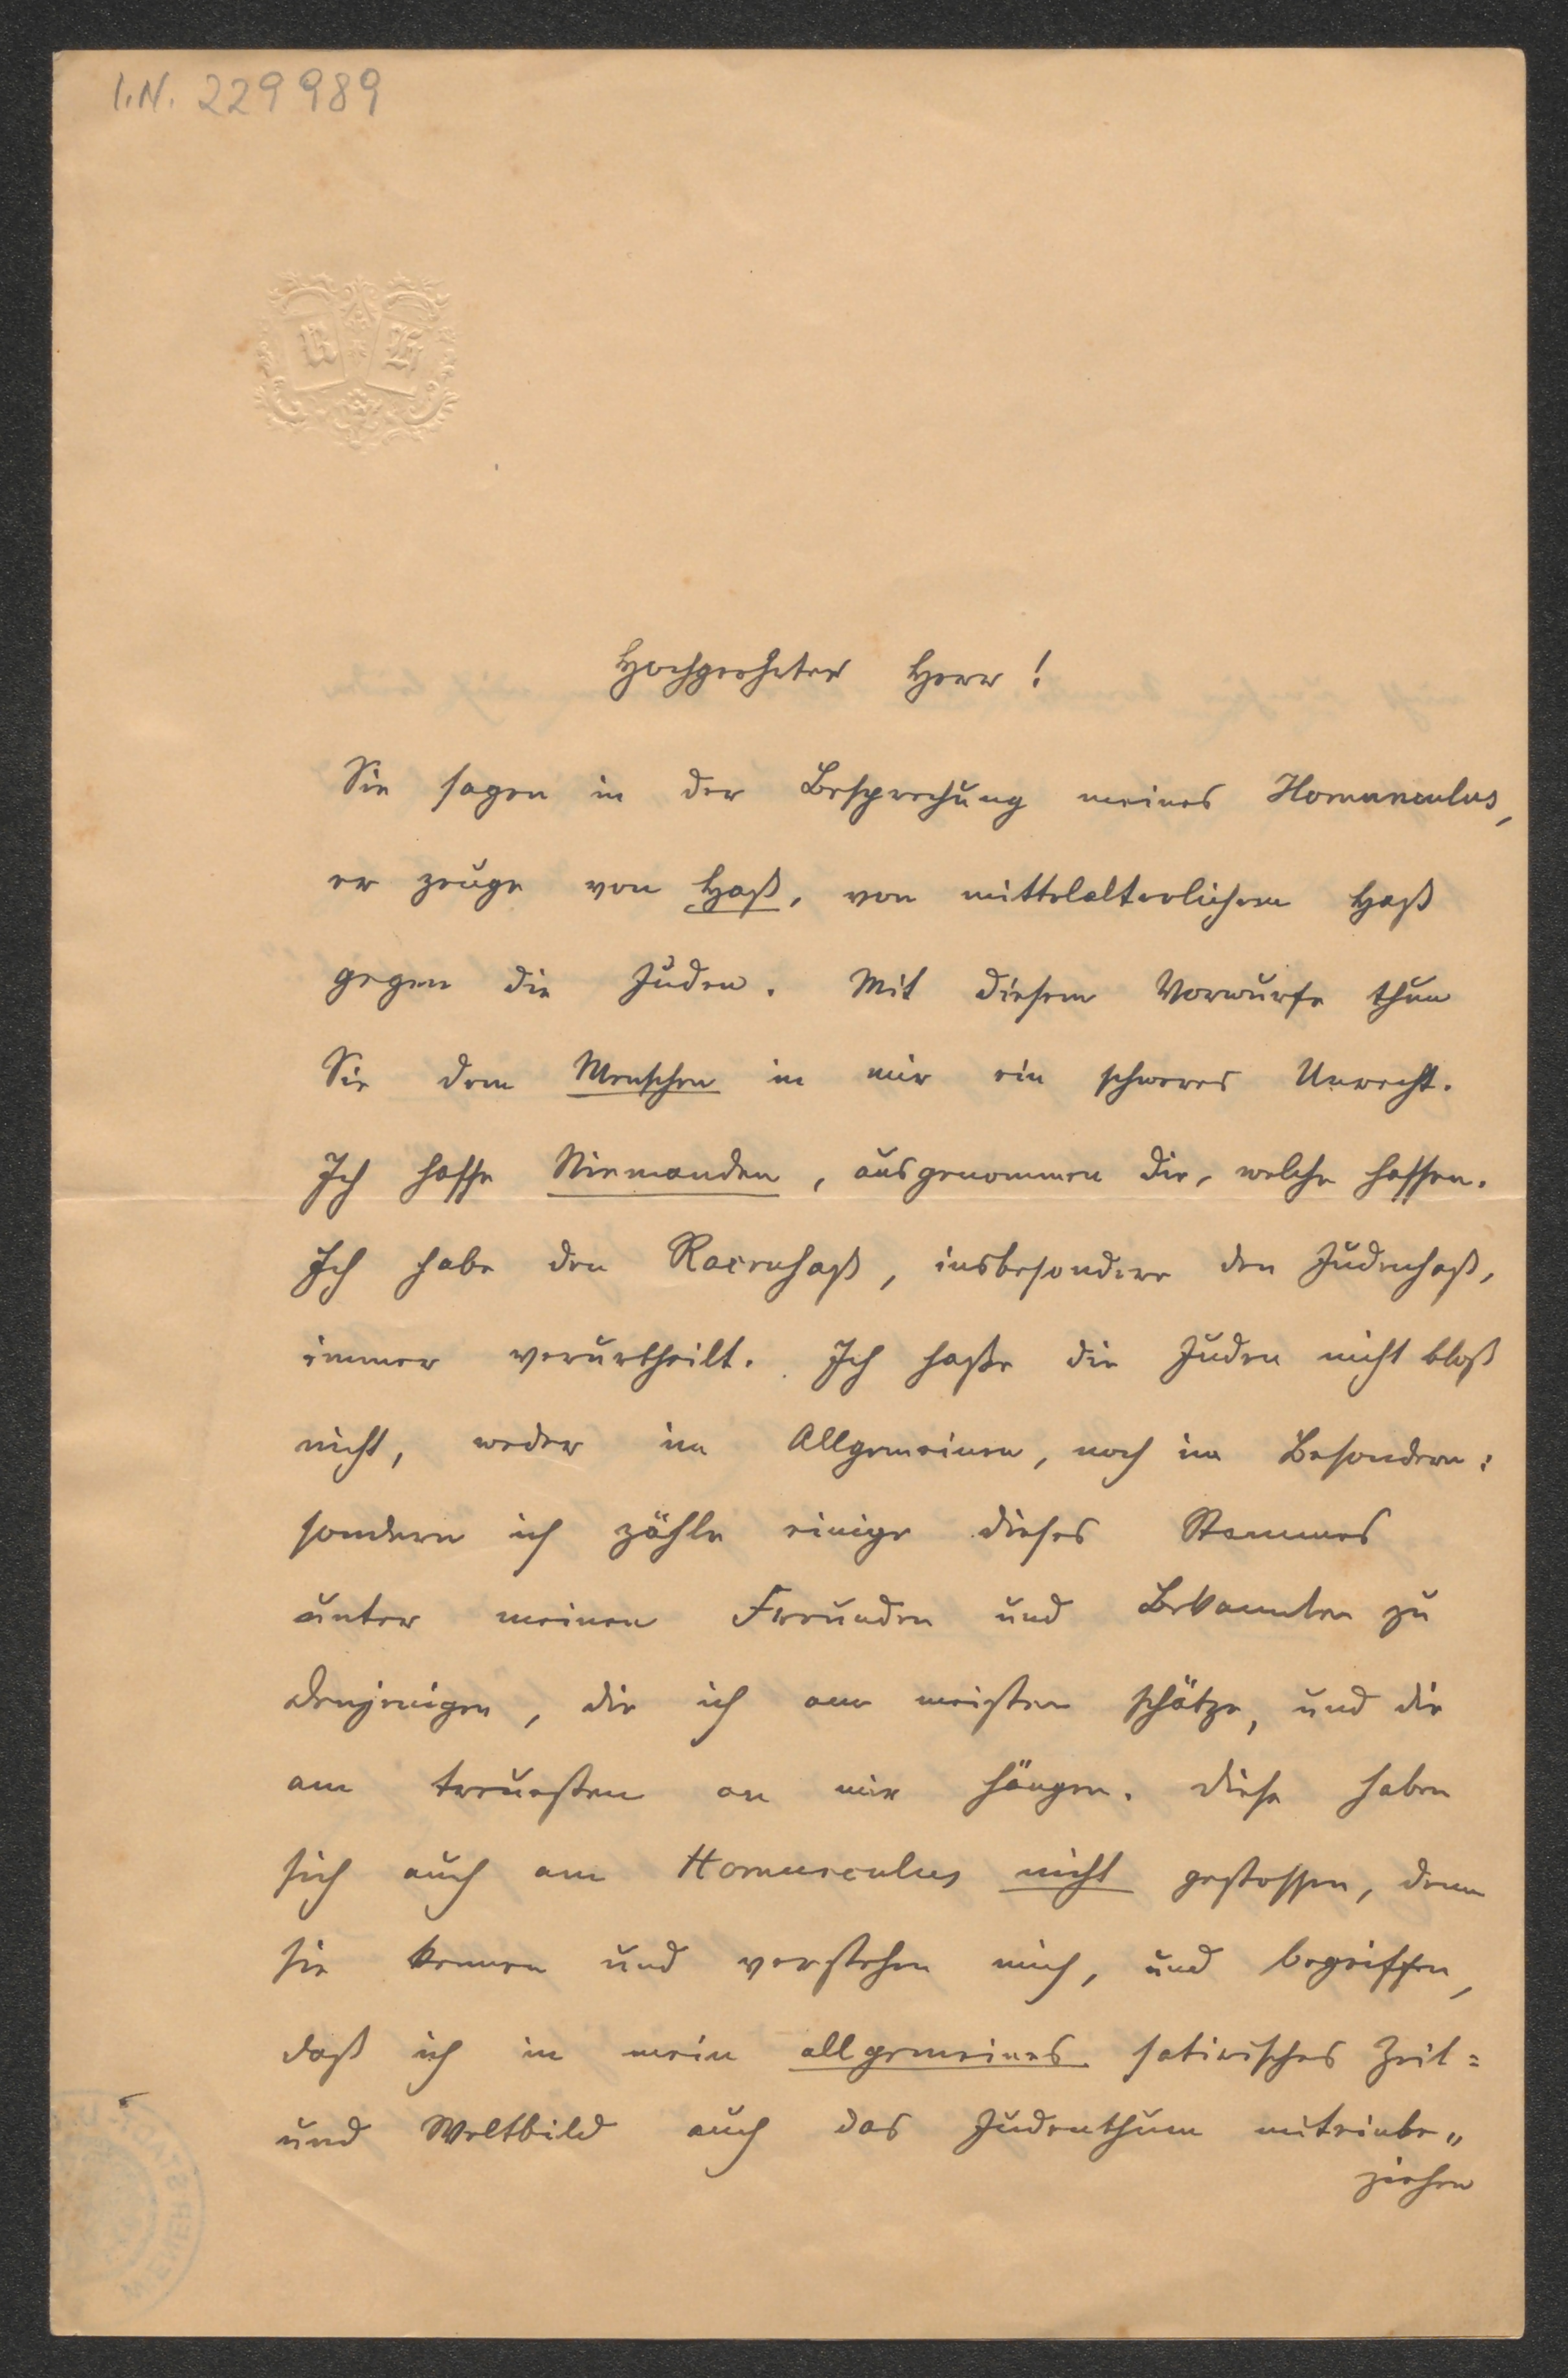 I.N. 229989
R H
Hochgeehrter Herr!
Sie sagen in der Besprechung meines Homunculus,
er zeuge von Haß, von mittelalterlichem Haß
gegen die Juden. Mit diesem Vorwurfe thun
Sie dem Menschen in mir ein schweres Unrecht.
Ich hasse Niemanden, ausgenommen die, welche hassen.
Ich habe den Racenhaß, insbesondere den Judenhaß,
immer verurtheilt. Ich haße die Juden nicht bloß
nicht, weder im Allgemeinen, noch im Besondern:
sondern ich zähle einige dieses Stammes
unter meinen Freunden und Bekannten zu
denjenigen, die ich am meisten schätze, und die
am treuesten an mir hängen. Diese haben
sich auch am Homunculus nicht gestossen, denn
sie kennen und verstehen mich, und begriffen,
daß ich in mein allgemeines satirisches Zeit=
und Weltbild auch das Judenthum miteinbe„
ziehen